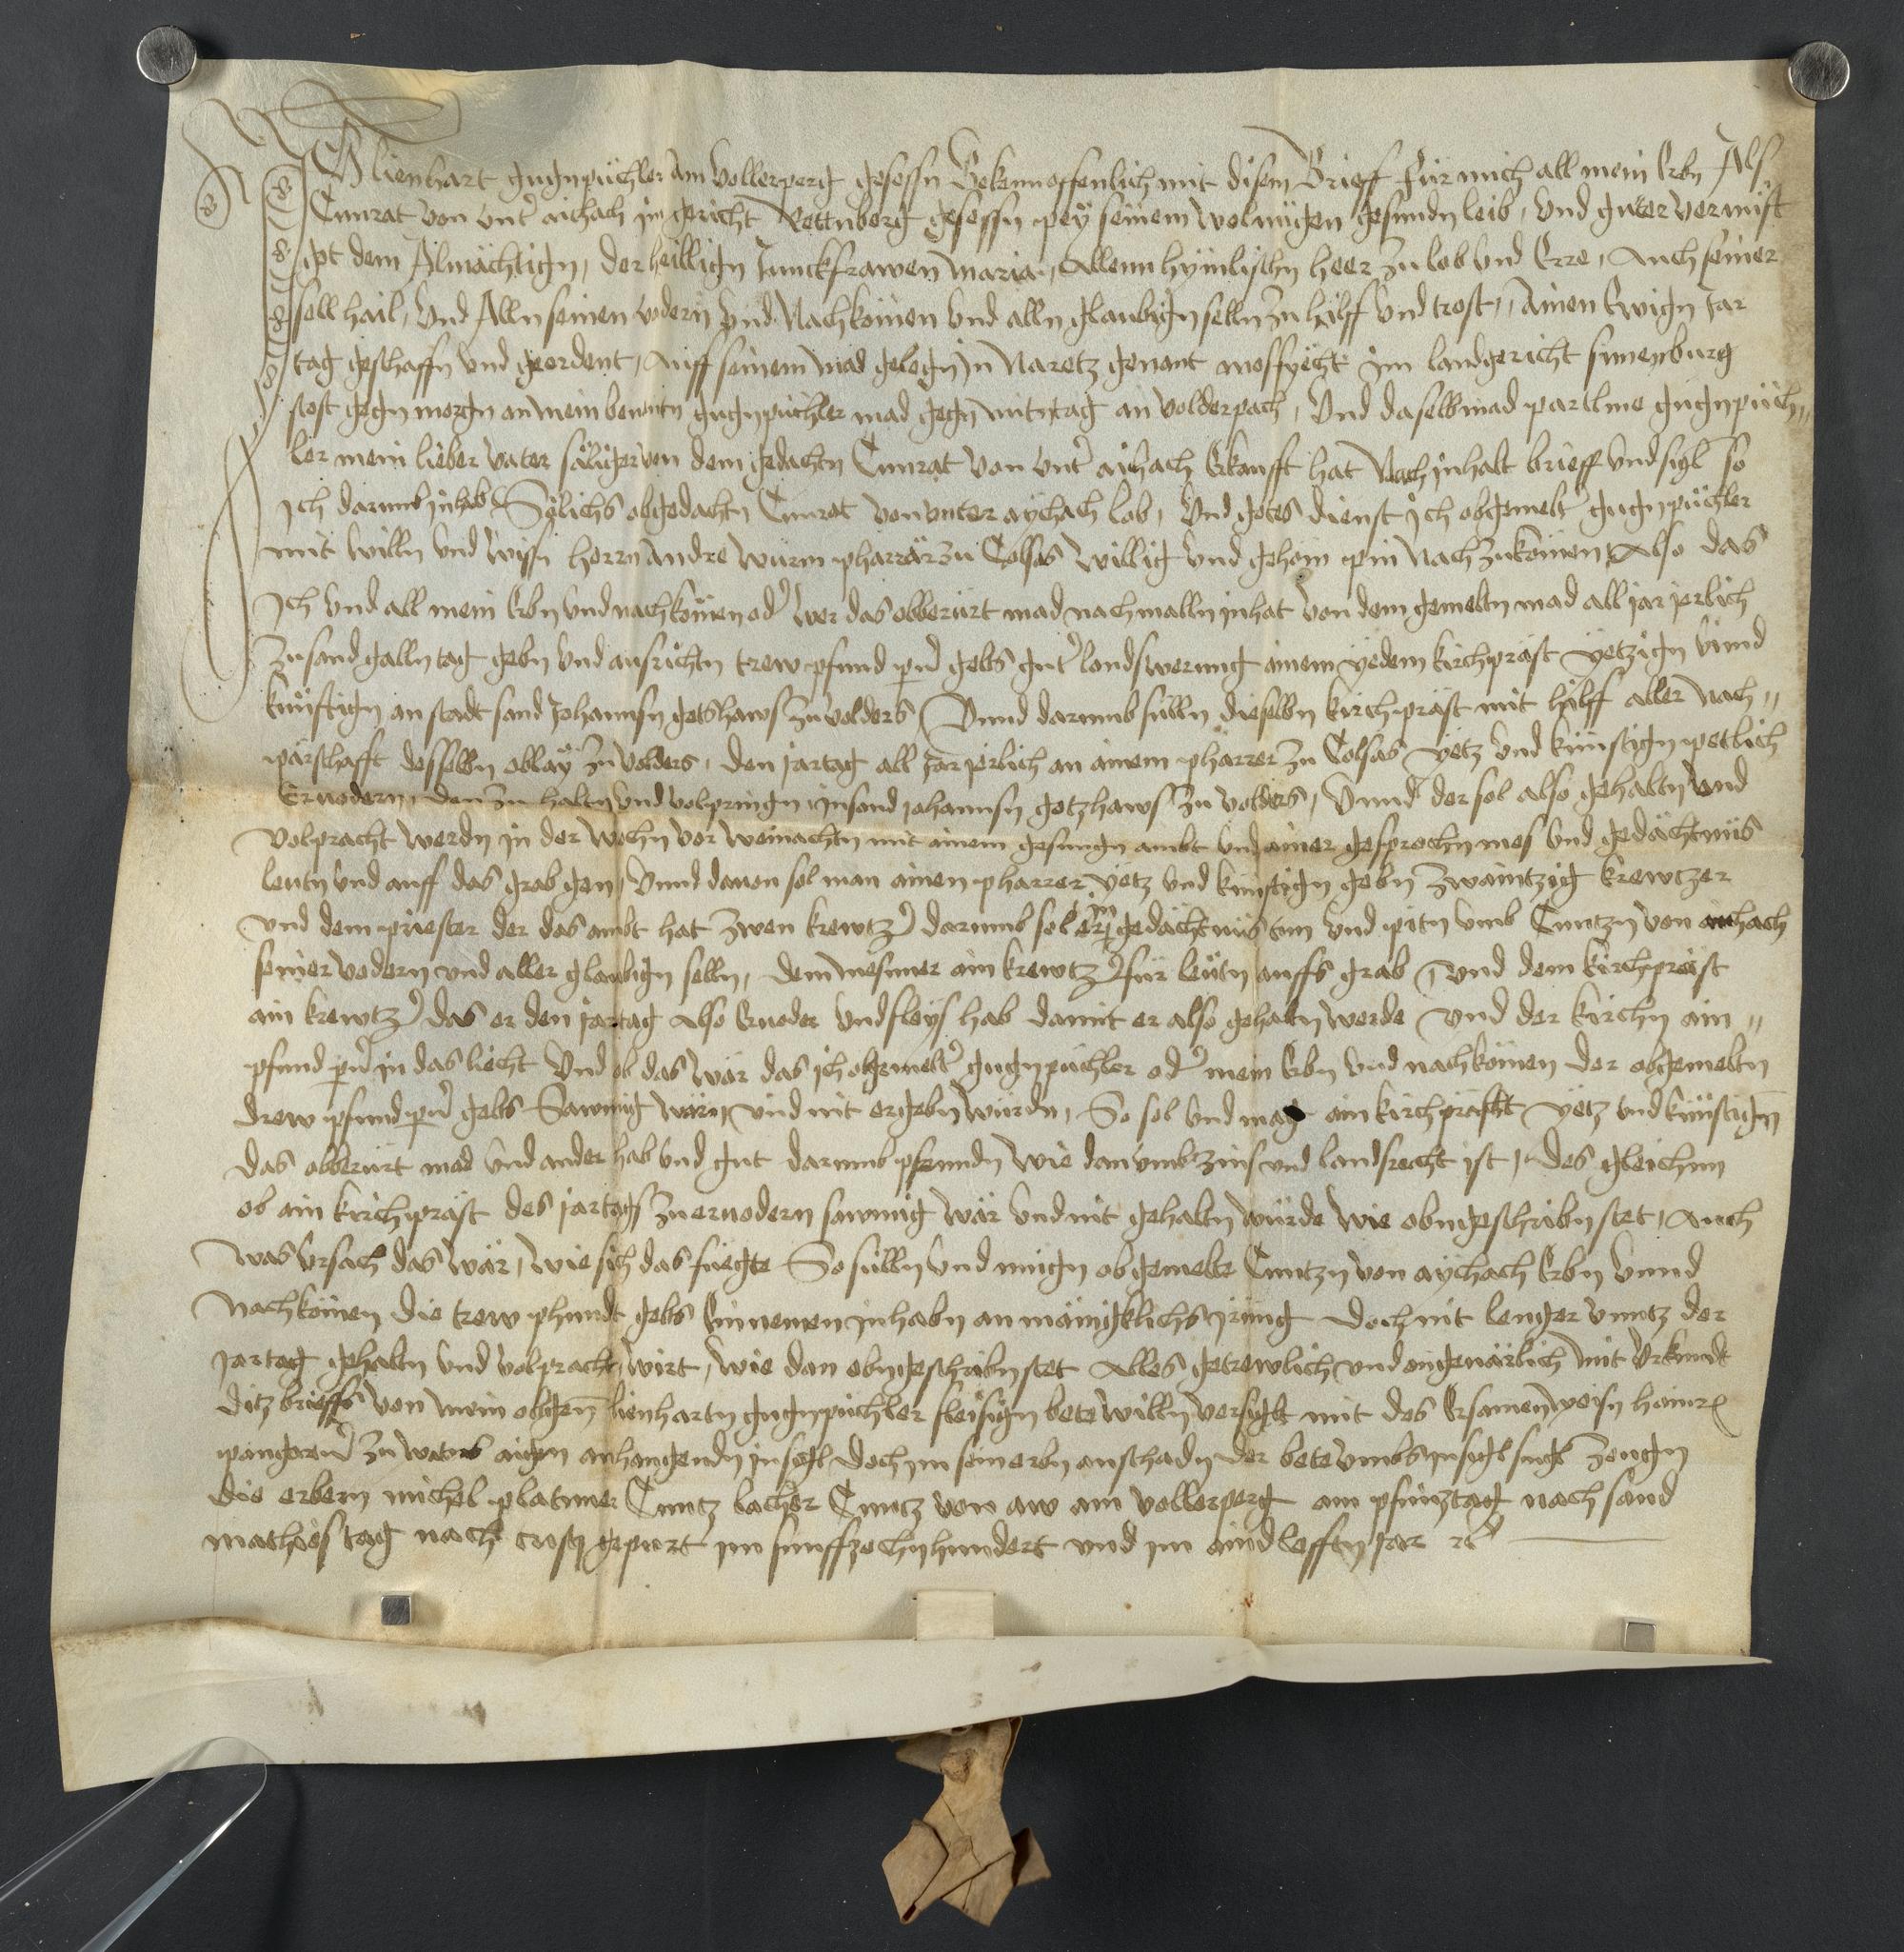 Ich lienhart gugnpüchler am vollerperg gesessn Bekenn offenlich mit disem Brieff für mich all mein Erbn Als
Cunrat von unt' aichach in gericht Rettnberg gesessn pey seinem wolmügen gesundn leib, und guter vernüft
got dem Almächtign, der heilligen Junckfrawen maria, Allenn hymlischn heer zu lob und Erre, Auch seiner
sell hail, und Alln seinen vodern und Nachkomen und alln glaubign selln zu hilff und trost, Ainen Ewign Jar
tag geschaffn und geordent, Auff seinem mad gelegn in Naretz genant im landgericht sunenburg
stost gegn morgn an mein benentn gugnpüchler mad gegn mitntag an volderpach, Und daselb mad partlme gugnpüch„
ler mein lieber vater säliger von dem gedachtn Cunrat von unt' aichach Erkaufft hat Nach inhalt brieff und sigl so
Ich darumb inhab Sölichs obgedachtn Cunrat von unter aychach lob, Und gotes dienst Ich obgemelt' gugnpüchler
mit willn und wissn herrn Andre würm pharrär zu Colsas willig und gehorn pin Nach zukomen, Also das
Ich und all mein Erbn und nachkomen od' wer das obberürt mad nachmalln inhat von dem gemeltn mad all jar jerlich
zu sand galln tag gebn und ausrichtn trew pfund pn' gelts gut' landswerung ainem yedem kirchpräst yetzign unnd
künftign an stadt sand Johannsn gotshaws zu volders, Unnd darumb sülln dieselbn kirchpräst mit hilff aller nach„
parschafft desselbn oblay zu volders, den jartag all Jar jerlich an ainem pharrer zu Colsas yetz und künftign petlich
Ervodern, den zu haltn und volpringn in sand johannsn gotzhaws zu volders, Unnd der sol also gehaltn und
volpracht werdn in der wochn vor weinachtn mit ainem gesungn ambt und ainer gesprochn mes und gedächtnüs
leutn und auff das grab gen, Unnd davon sol man ainen pharrer yetz und künftign gebn zwaintzig krewtzer
und dem priester der das ambt hat zwen krewtz' darumb sol er gedächtnüs tun und pitn umb Cuntzn von aichach
seiner vodern und aller glaubign selln, dem mesmer ain krewtz' für leutn auffs grab und dem kirchpräst
ain krewtz' das er den jartag Also Ervoder und fleys hab damit er also gehaltn werde und der kirchn ain„
pfund pn' in das liecht Und ob das wär das ich obgemelt' gugnpüchler od' mein Erbn und nachkomen der obgemeltn
drew pfund pn' gelts Sawmig wärn und nit ergebn würdn, So sol und mag ain kirchpräst yetz und künftign
das obberürt mad und ander hab und gut darumb pfenndn wie dan umb zins und landsrecht ist, Des gleichnn
ob ain kirchpräst des jartags zu ervodern sawmig wär und nit gehaltn würde wie obngeschribn stet, Auch
was Ursach das wär, wie sich das fuegte So sülln und mügn obgemelte Cuntzn von aychach Erbn unnd
Nachkomen die trew phundt gelts Einnemen inhabn an mänigklichs irung doch nit lenger untz der
Jartag gehaltn und volpracht wirt, wie dan obngeschribn stet Alles getrewlich und ongevärlich Mit Urkundt
ditz brieffs von mein obgen lienhartn gugnpüchler fleisign bete willn versiglt mit des Ersamen weisn hainr
zu aign anhangendn insigl doch im sein erbn an schadn der bete umbs insigl sind zeugn
die erbern michel platner Cuntz lacher Cuntz von aw am vollerperg am pfinztag nach sand
mathias tag nach cristi gepurt im funffzechnhundert und im aindlefftn jar